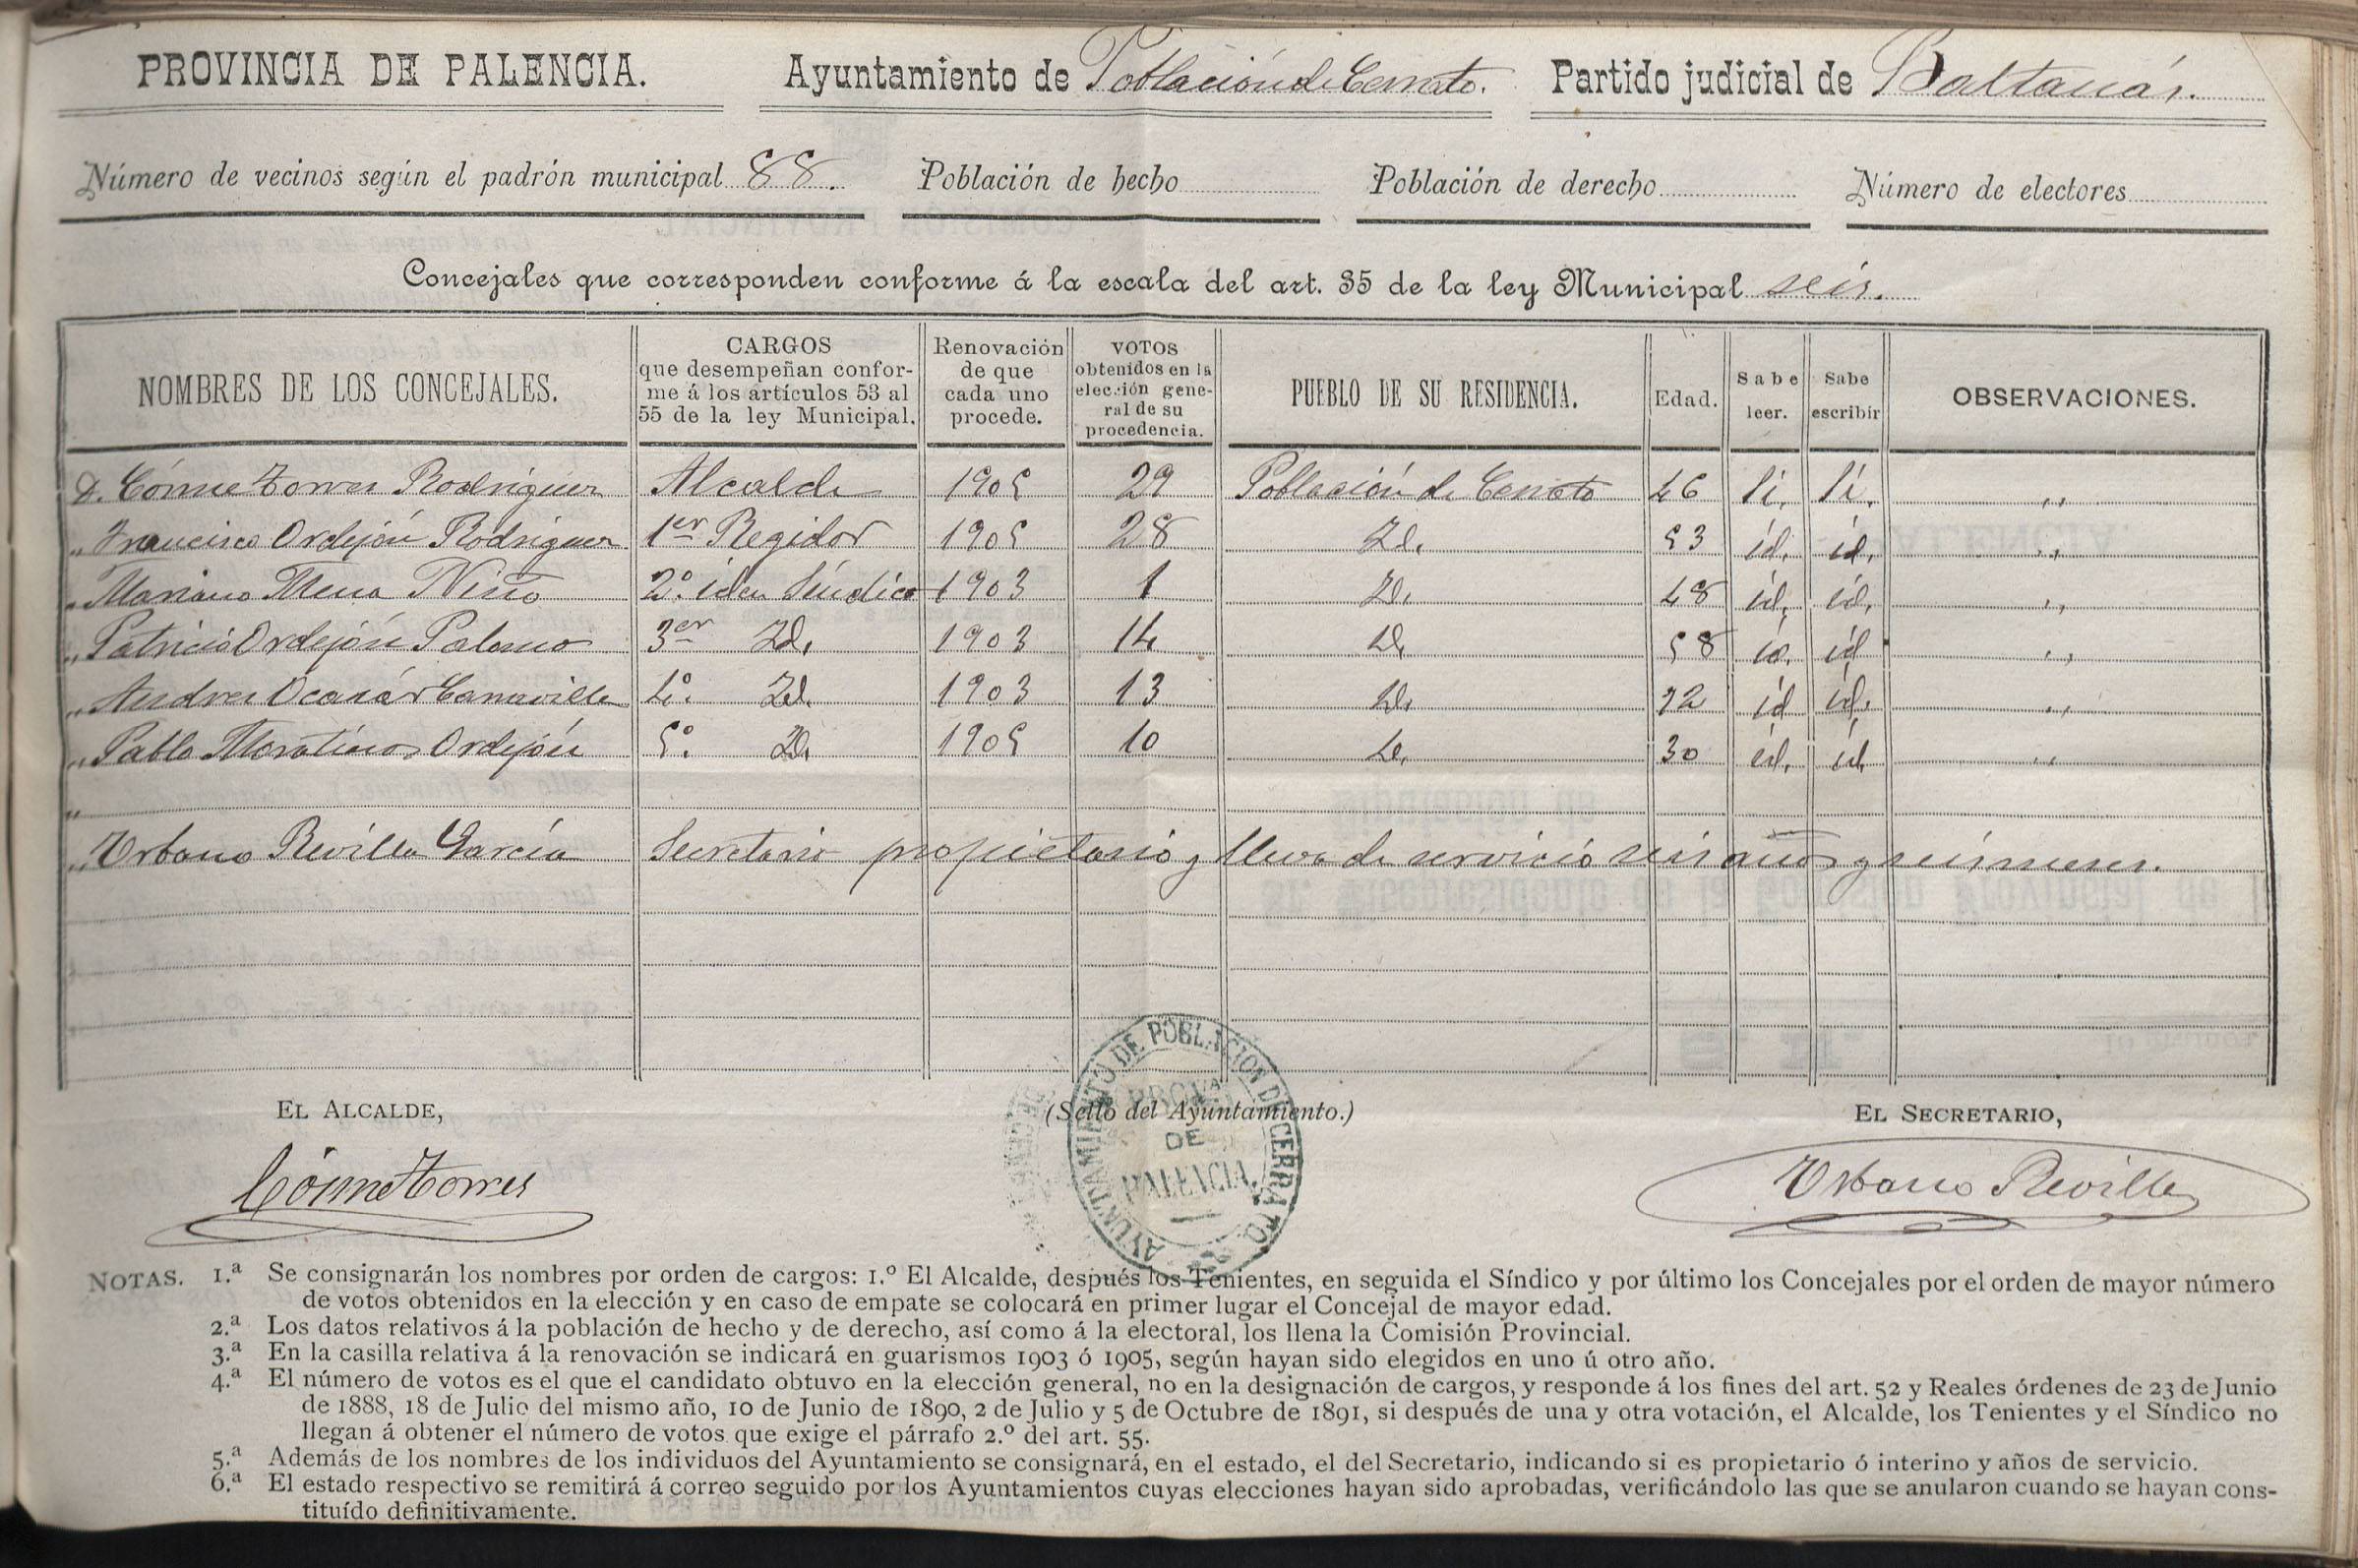 PROVINCIA DE PALENCIA. Ayuntamiento de Población de Cerrato. Partido judicial de Baltanás.
Número de vecinos según el padrón municipal 88. Población de hecho Población de derecho Número de electores
Concejales que corresponden conforme á la escala del art. 35 de la ley Municipal seis.
NOMBRES DE LOS CONCEJALES. CARGOS que desempeñan confor-me á los artículos 53 al 55 de la ley Municipal. Renovación de que cada uno procede. VOTOS obtenidos en la elección gene-ral de su procedencia. PUEBLO DE SU RESIDENCIA. Edad. Sabe leer. Sabe escribir OBSERVACIONES.
D. Cósme Torres Rodriguez Alcalde 1905 29 Población de Cerrato 46 Sí. Sí. ,,
,, Francisco Ordejón Rodriguez 1er Regidor 1905 28 Id. 53 id. id. ,,
,, Mariano Mena Niño 2º. idem Síndico 1903 1 Id. 48 id. id. ,,
,, Patricio Ordejón Palomo 3er Id. 1903 14 Id. 58 id. id ,,
,, Andres 4º. Id. 1903 13 Id. id id. ,,
,, Pablo Moratinos Ordejón 5º. Id. 1905 10 Id. 30 id. id. ,,
,,
,, Urbano Revilla García Secretario propietario y lleva de servicio seis años y seis meses.
EL ALCALDE, (Sello del Ayuntamiento.) EL SECRETARIO,
AYUNTAMIENTO DE POBLACION DE CERRATO.
PROVA
DE
PALENCIA.
Cósme Torres Urbano Revilla
NOTAS. 1.ª Se consignarán los nombres por orden de cargos: 1.º El Alcalde, después los Tenientes, en seguida el Síndico y por último los Concejales por el orden de mayor número
de votos obtenidos en la elección y en caso de empate se colocará en primer lugar el Concejal de mayor edad.
2.ª Los datos relativos á la población de hecho y de derecho, así como á la electoral, los llena la Comisión Provincial.
3.ª En la casilla relativa á la renovación se indicará en guarismos 1903 ó 1905, según hayan sido elegidos en uno ú otro año.
4.ª El número de votos es el que el candidato obtuvo en la elección general, no en la designación de cargos, y responde á los fines del art. 52 y Reales órdenes de 23 de Junio
de 1888, 18 de Julio del mismo año, 10 de Junio de 1890, 2 de Julio y 5 de Octubre de 1891, si después de una y otra votación, el Alcalde, los Tenientes y el Síndico no
llegan á obtener el número de votos que exige el párrafo 2.º del art. 55.
5.ª Además de los nombres de los individuos del Ayuntamiento se consignará, en el estado, el del Secretario, indicando si es propietario ó interino y años de servicio.
6.ª El estado respectivo se remitirá á correo seguido por los Ayuntamientos cuyas elecciones hayan sido aprobadas, verificándolo las que se anularon cuando se hayan cons-
tituído definitivamente.